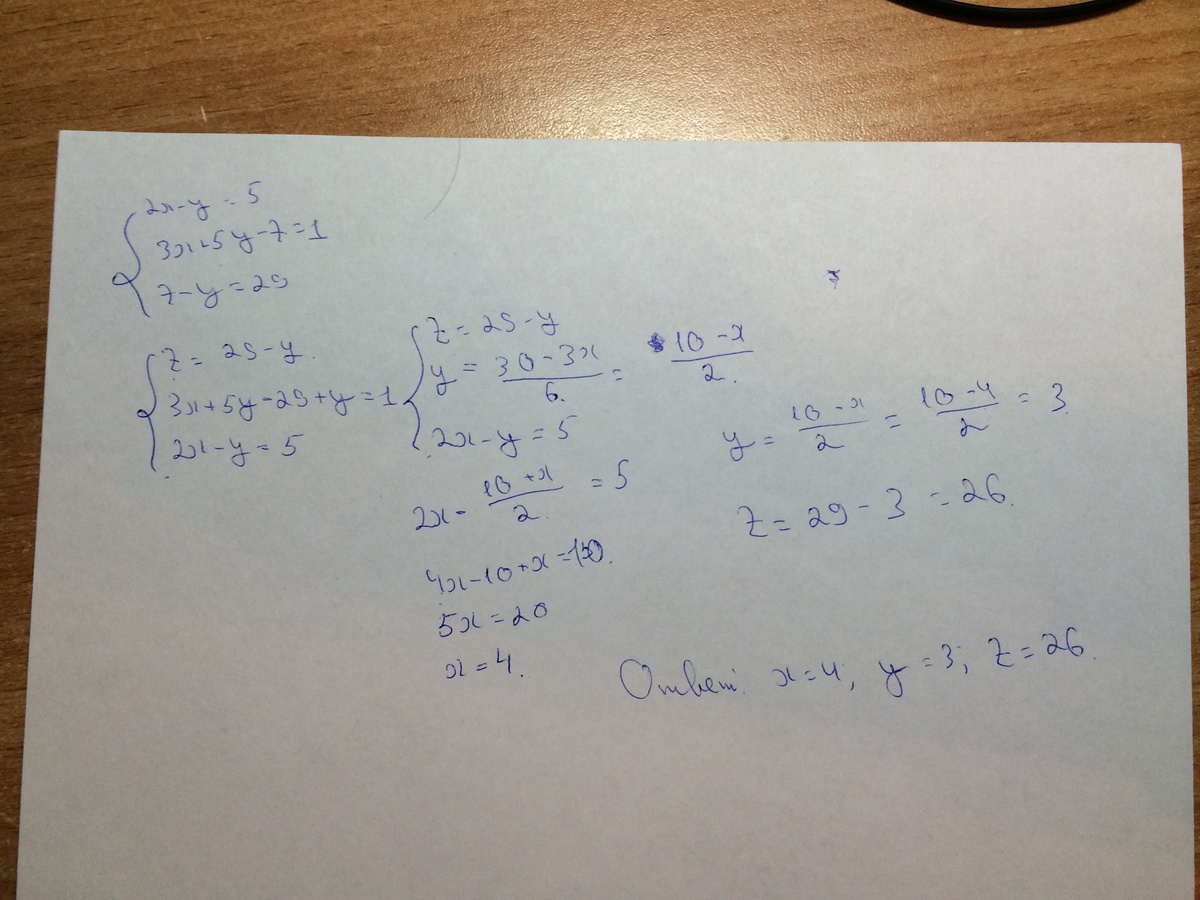 2x-y = 5
3x+5y-z=1
z-y=29
z = 29-y.
3x+5y-29+y=1
2x-y=5
z = 29-y
y = \frac{30-3x}{6.} = \frac{10-x}{2.}
2x-y=5
2x - \frac{10+x}{2} = 5
4x-10+x=10.
5x=20
x=4.
y = \frac{10-x}{2} = \frac{10-4}{2} = 3
z = 29-3 = 26.
Ответ: x=4; y=3; z=26.